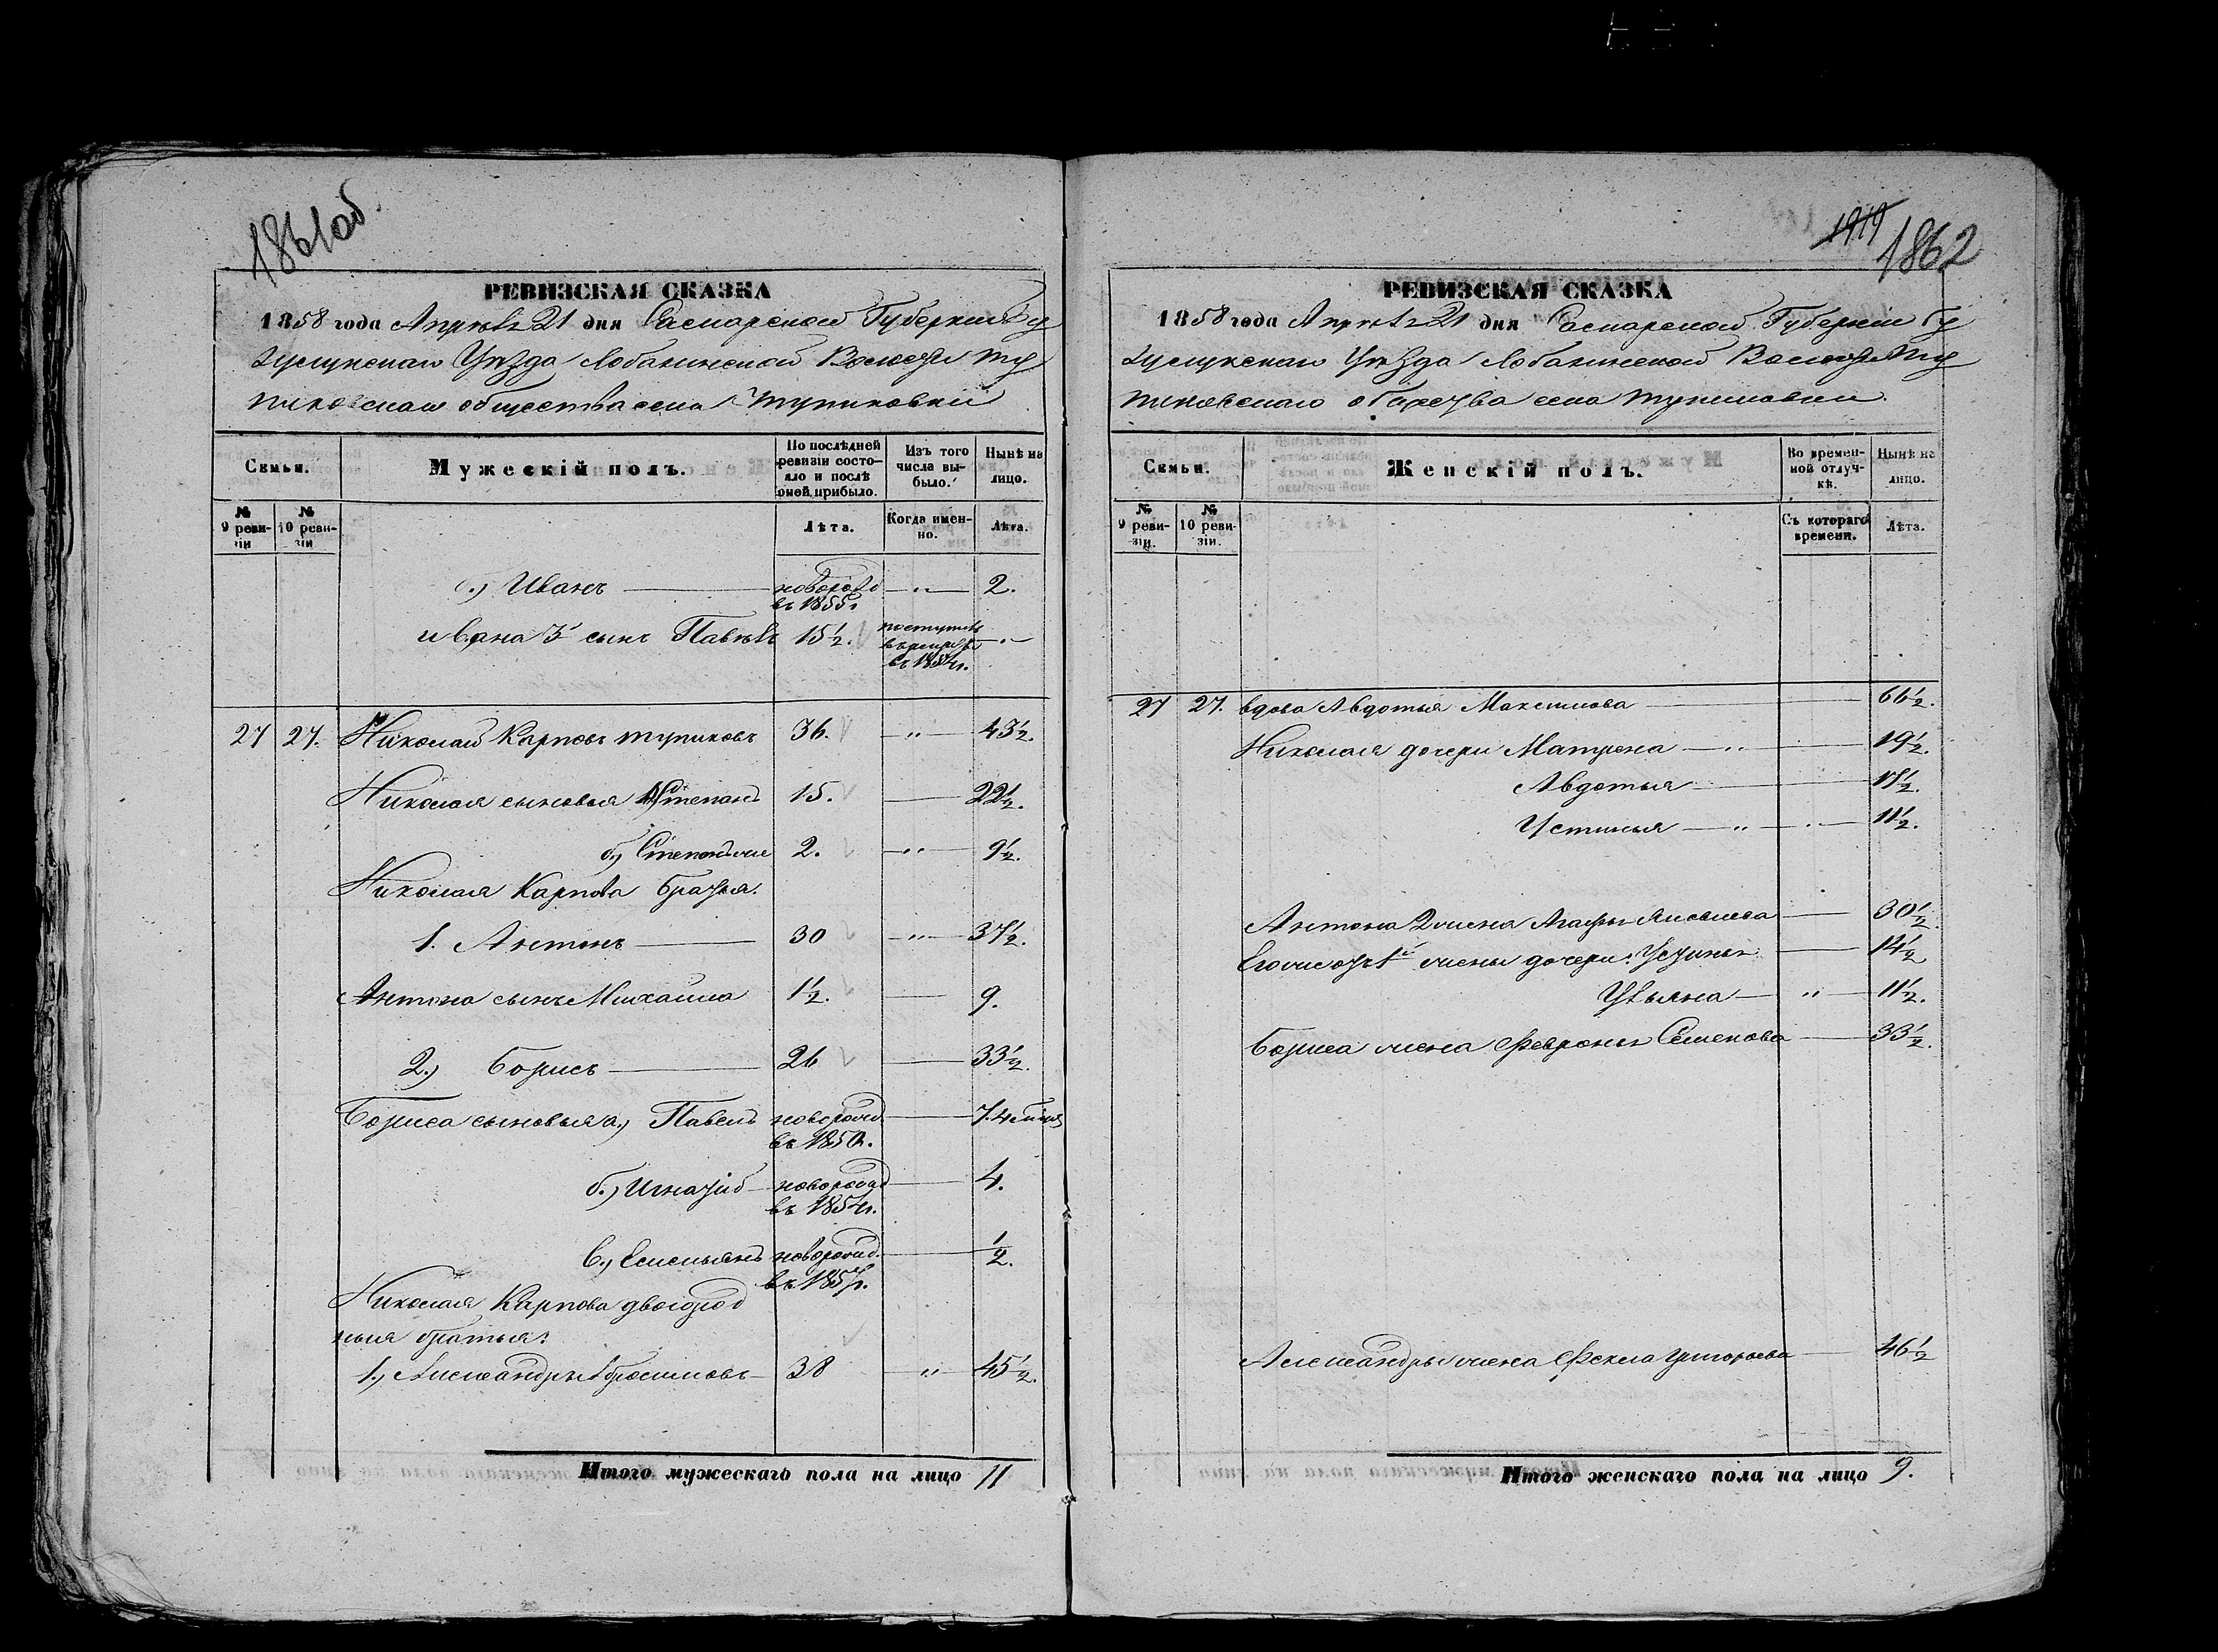 1861об.
РЕВИЗСКАЯ СКАЗКА
1858 года Апрѣля 21 дня Самарской Губерніи Бу
зулукскаго Уѣзда Лобазинской Волости Ту
пиковскаго общества села Тупиковки
Семьи.
Мужескій полъ.
По послѣдней ревизіи состояло и послѣ оной прибыло.
Изъ того числа выбыло.
Нынѣ на лицо.
№ 9 ревизіи
№ 10 ревизіи
Лѣта.
Когда именно.
Лѣта.
б.) Иванъ новорожд въ 1855г. „ 2.
Ивана 3й сынъ Павелъ 15½. поступилъ въ рекруты въ 1854г. „
27 27. Николай Карповъ Тупиковъ 36. „ 43½.
Николая сыновья Степанъ 15. 22½.
б.) Степанъ же 2. „ 9½.
Николая Карпова братья.
1. Антонъ 30 „ 37½.
Антона сынъ Михаила 1½. 9.
2.) Борисъ 26 33½.
Бориса сыновья а.) Павелъ новорожд. въ 1850г. 7.
б.) Игнатій новорожд въ 1854г. 4.
в.) Емельянъ новорожд. въ 1857г. ½.
Николая Карпова двоюрод
ныя братья:
1.) Александръ Абросимовъ 38 „ 45½.
Итого мужескаго пола на лицо 11
1919
1862
РЕВИЗСКАЯ СКАЗКА
1858 года Апрѣля 21 дня Самарской Губерніи Бу
зулукскаго Уѣзда Лобазинской Волости Ту
пиковскаго общества села Тупиковки.
Семьи.
Женскій полъ.
Во временной отлучкѣ.
Нынѣ на лицо.
№ 9 ревизіи.
№ 10 ревизіи.
Съ котораго времени.
Лѣта.
27 27. вдова Авдотья Максимова 66½.
Николая дочери Матрена „ 19½.
Авдотья 17½.
Устинья „ 11½.
Антона 2 жена Агафья 30½.
Его же отъ 1й жены дочери: Устинья 14½
Ульяна „ 11½.
Бориса жена Февронья Семенова 33½.
Александры жена Фекла Григорьева 46½
Итого женскаго пола на лицо 9.